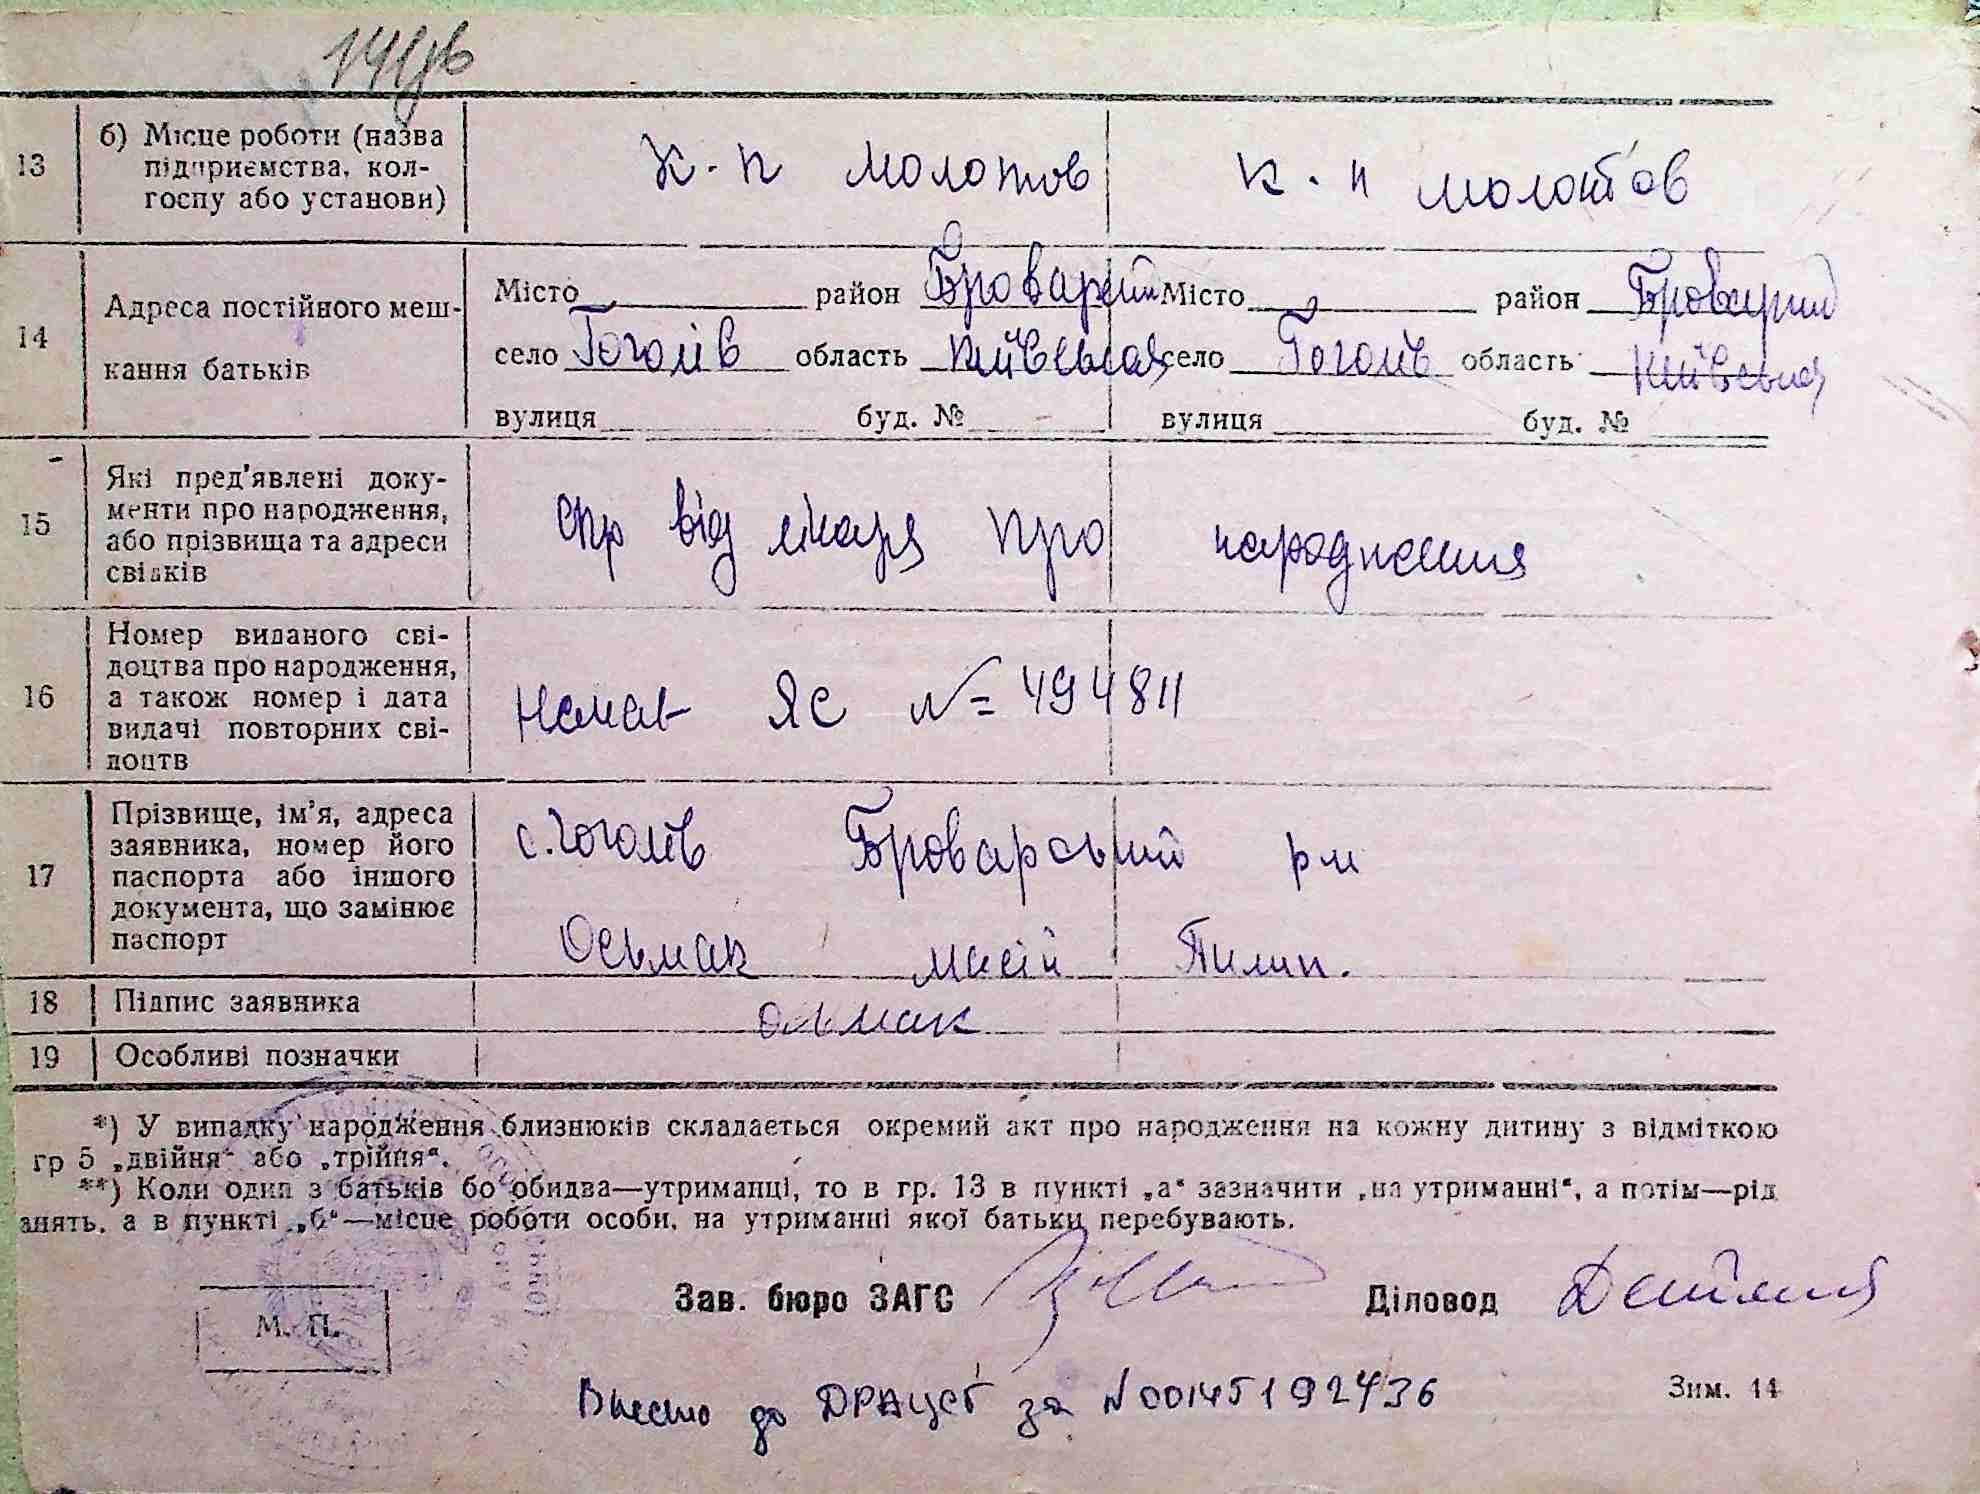 13 б) Місце роботи (назва підприємства, колгоспу або установи) к-п молотов к-п молотов
14 Адреса постійного мешкання батьків
Місто район Броварський Місто район
село Гоголів область Київська село Гоголів область Київська
вулиця буд. № вулиця буд. №
15 Які пред'явлені документи про народження, або прізвища та адреси свідків спр від лікаря про народження
16 Номер виданого свідоцтва про народження, а також номер і дата видачі повторних свідоцтв ЯС № 494811
17 Прізвище, ім'я, адреса заявника, номер його паспорта або іншого документа, що замінює паспорт с. Гоголів Броварський
Осьмак Пилип.
18 Підпис заявника Осьмак
19 Особливі позначки
*) У випадку народження близнюків складається окремий акт про народження на кожну дитину з відміткою
гр 5 „двійня“ або „трійня“.
**) Коли один з батьків бо обидва—утриманці, то в гр. 13 в пункті „а“ зазначити „на утриманні“, а потім—рід
анять, а в пункті „б“—місце роботи особи, на утриманні якої батьки перебувають.
Зав. бюро ЗАГС Діловод
М. П.
Внесено до ДРАЦСГ за №00145192436
Зим. 44